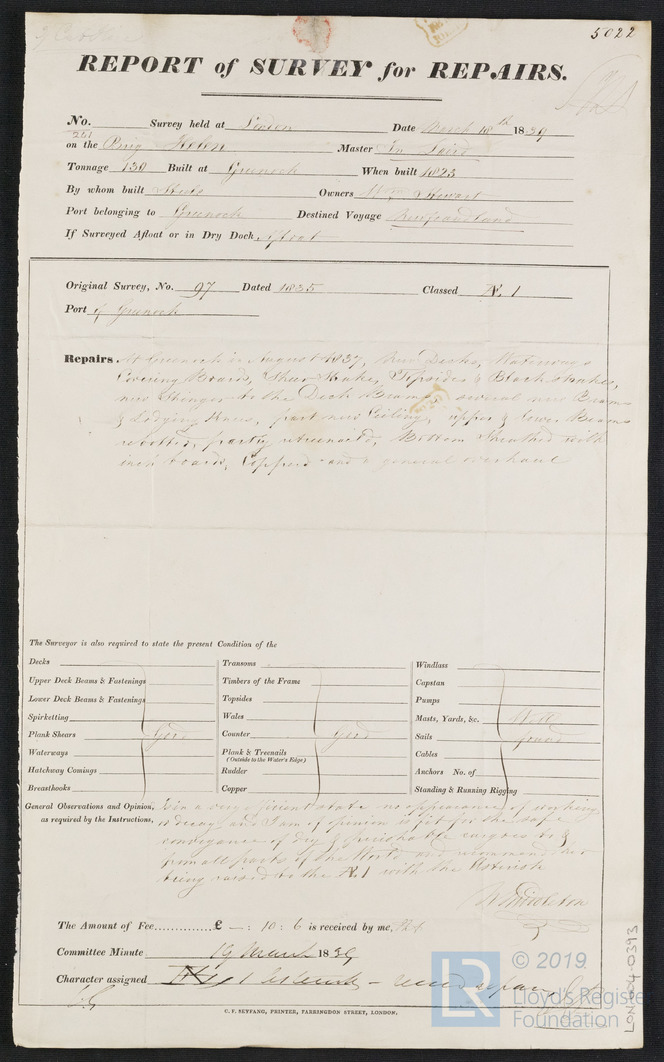 5022
REPORT of SURVEY for REPAIRS.
No. 261 Survey held at London Date March 18th 1839
on the Brig Helen Master Jn Laird
Tonnage 130 Built at Greenock When built 1823
By whom built Steele Owners Stewart
Port belonging to Greenock Destined Voyage Newfoundland
If Surveyed Afloat or in Dry Dock. Afloat
Original Survey, No. 97 Dated 1835 Classed Æ 1
Port of Greenock
Repairs. At Greenock in August 1837, New Decks, Waterways
Covering Boards, Sheer Strakes, Topsides & Blackstrakes,
new Stringer to the Deck Beams, several new Beams
& Lodging Knees, part new Ceiling, upper & lower Beams
rebolted, partly retreenailed, Bottom Sheathed with
inch board, Coppered and a general overhaul
The Surveyor is also required to state the present Condition of the
Decks
Upper Deck Beams & Fastenings
Lower Deck Beams & Fastenings
Spirketting
Plank Shears Good
Waterways
Hatchway Comings
Breasthooks
Transoms
Timbers of the Frame
Topsides
Wales
Counter Good
Plank & Treenails
(Outside to the Water's Edge)
Rudder
Copper
Windlass
Capstan
Pumps
Masts, Yards, &c. Well
Sails found
Cables
Anchors No. of
Standing & Running Rigging
General Observations and Opinion, Is in a very efficient state no appearance of working
as required by the Instructions, or decay and I am of opinion is fit for the safe
conveyance of dry & perishable cargoes to &
from all parts of the World and recommend her
being raised to the Æ 1 with the Asterisk
The Amount of Fee £ —: 10: 6 is received by me,
Committee Minute 19 March 1839
Character assigned Æ 1
C. F. SEYFANG, PRINTER, FARRINGDON STREET, LONDON.
LON604-0393
LR
© 2019
Lloyd's Register
Foundation